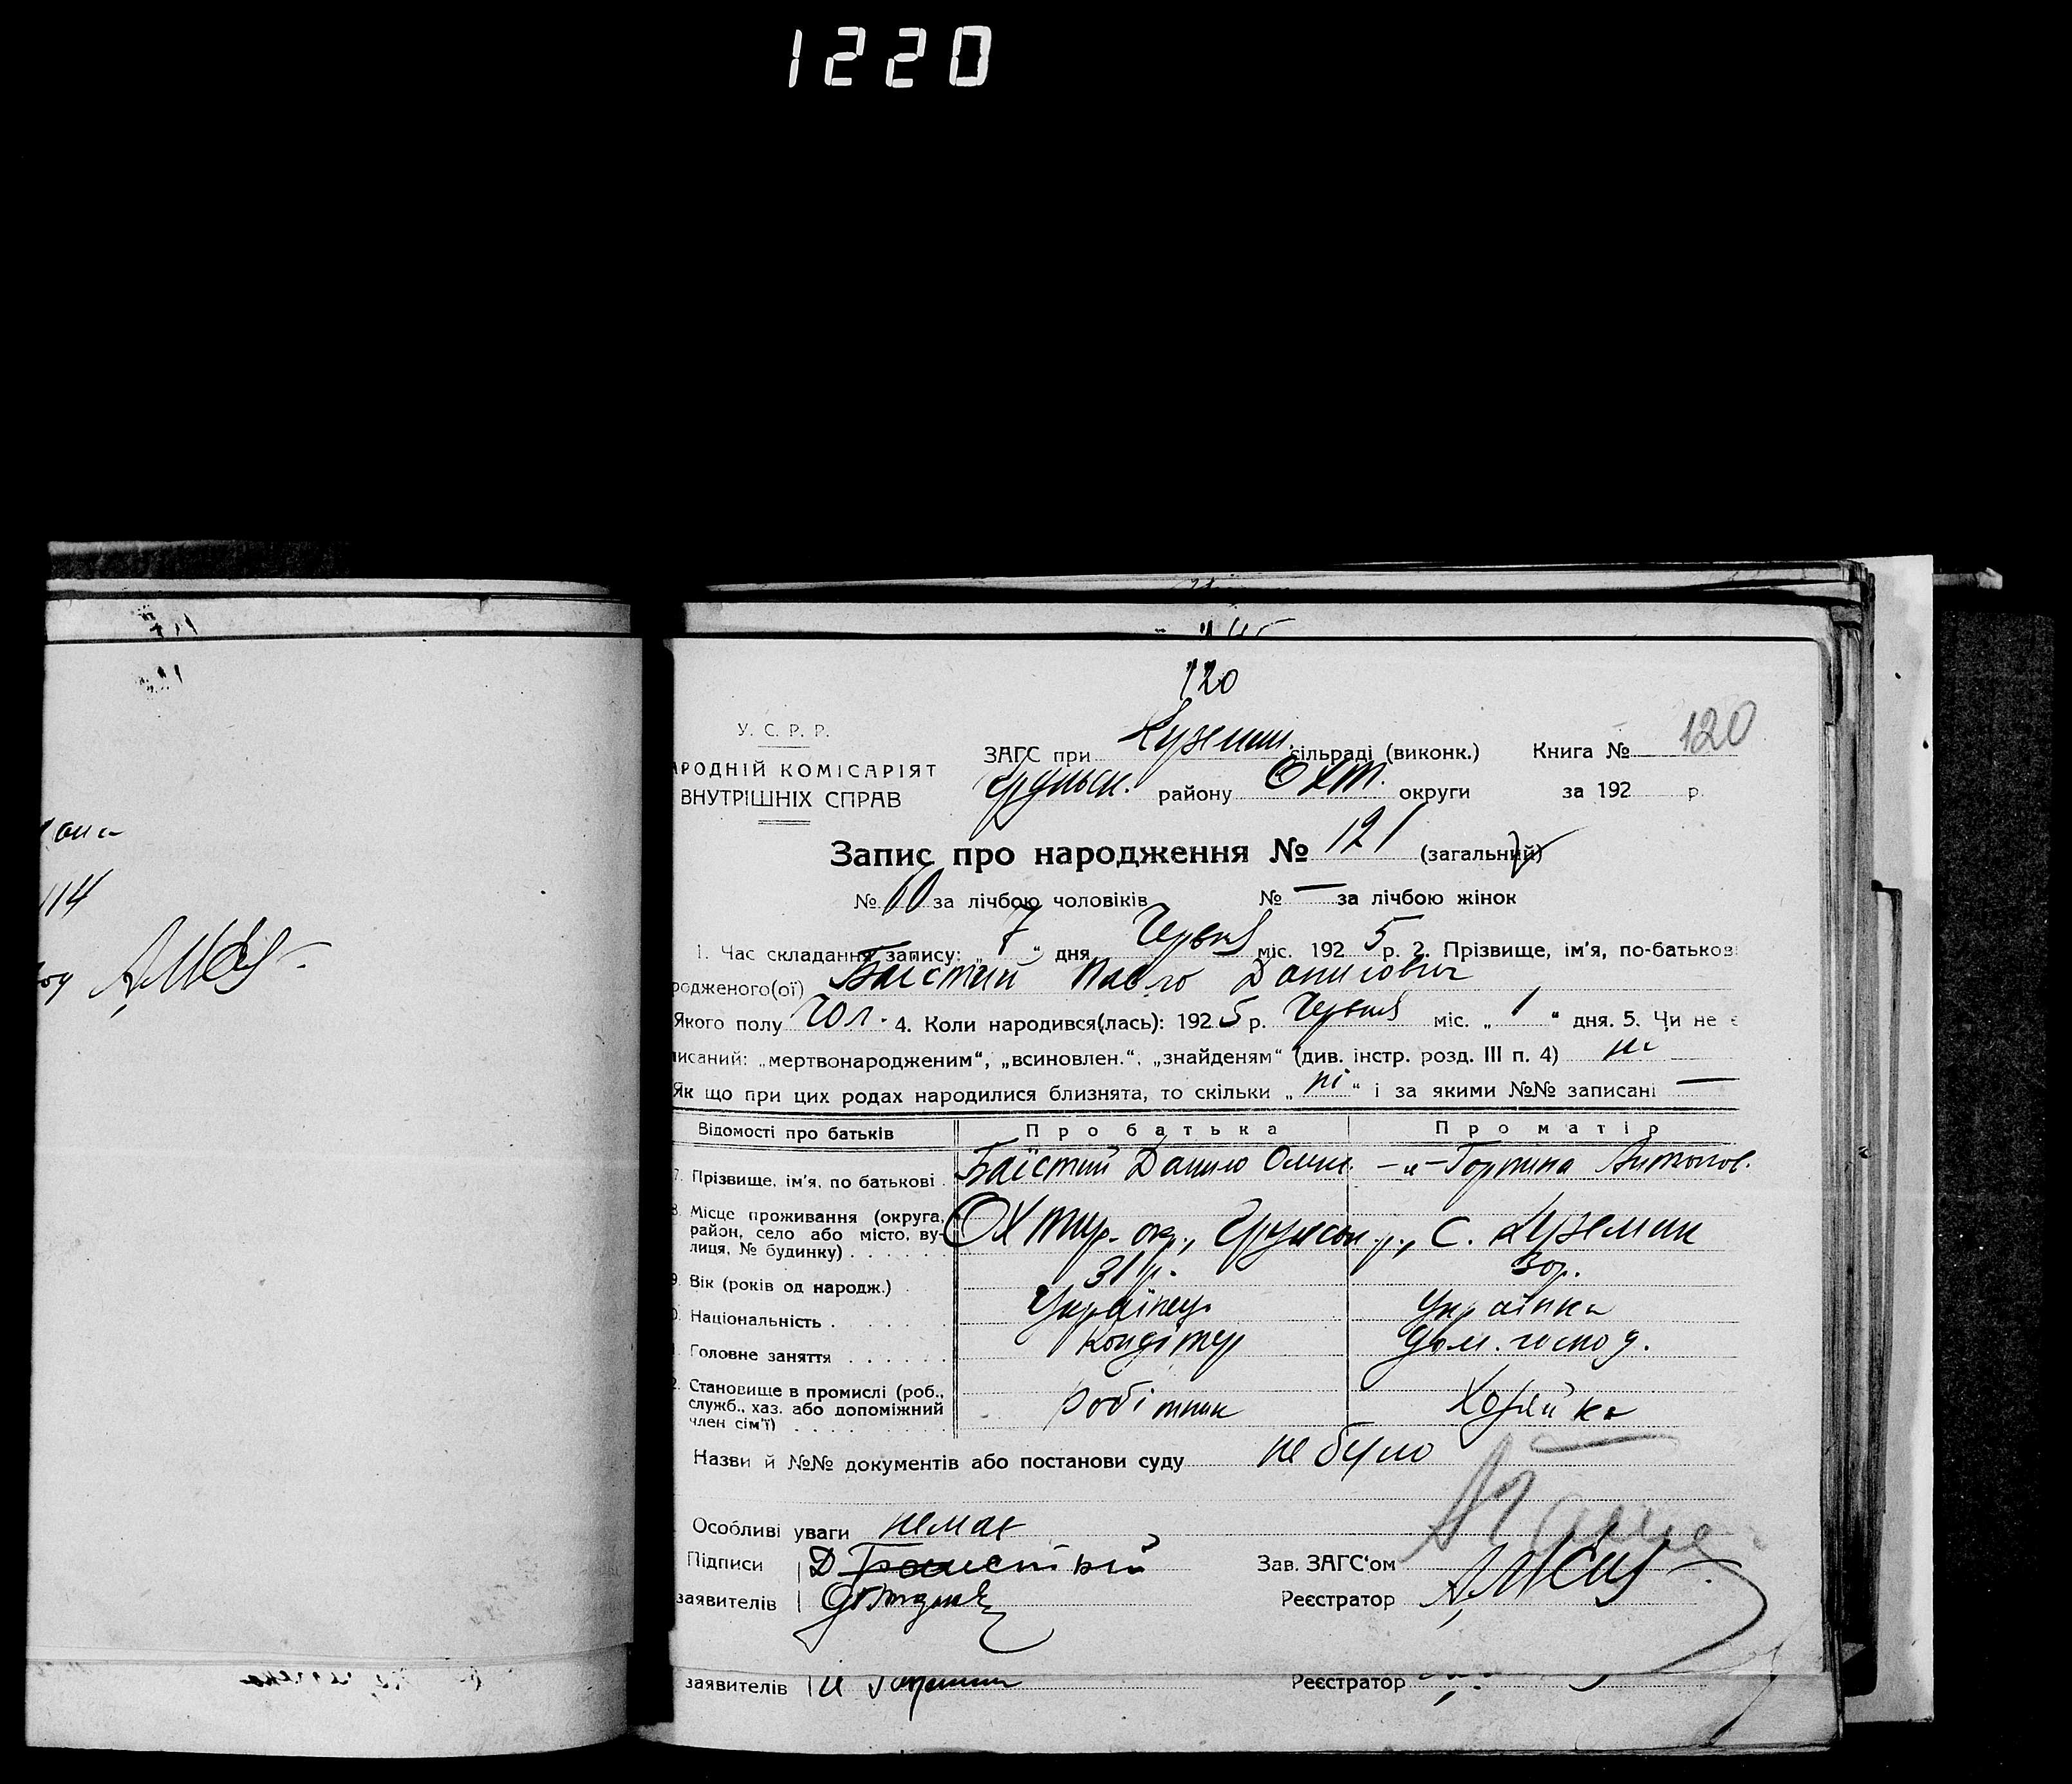 1220
120
У. С. Р. Р.
АРОДНІЙ КОМІСАРІЯТ
ВНУТРІШНІХ СПРАВ
ЗАГС при Куземин. сільраді (виконк.) Книга № 120
Грунськ. району Охт. округи за 192 р.
114
Запис про народження № 121 (загальний)
№ 60 за лічбою чоловіків № — за лічбою жінок
1. Час складання запису: „ 7 “ дня Червня міс. 192 5 р. 2. Прізвище, ім'я, по-батькові
родженого(ої) Баістий Павло Данилович
Якого полу чол. 4. Коли народився(лась): 192 5 р. Червня міс. „ 1 “ дня. 5. Чи не є
писаний: „мертвонародженим“, „всиновлен.“, „знайденям“ (див. інстр. розд. III п. 4) ні
Як що при цих родах народилися близнята, то скільки „ ні “ і за якими №№ записані —
Відомості про батьків Про батька Про матір
7. Прізвище, ім'я, по батькові . Баїстий Данило Омел. —„— Горпина Антонов.
8. Місце проживання (округа, район, село або місто, вулиця, № будинку) . . . . . Охтир. окр., Грунськ. р., с. Куземин
9. Вік (років од народж.) . 31 р. 30 р.
0. Національність . . . . . . Українець Українка
Головне заняття . . . . . . Кондітер Дом. господ.
2. Становище в промислі (роб., служб., хаз. або допоміжний член сім'ї) . . . . . . . . . робітник Хозяйка
Назви й №№ документів або постанови суду не було
Особливі уваги немає
Підписи Д Зав. ЗАГС‘ом
заявителів Реєстратор
заявителів Реєстратор